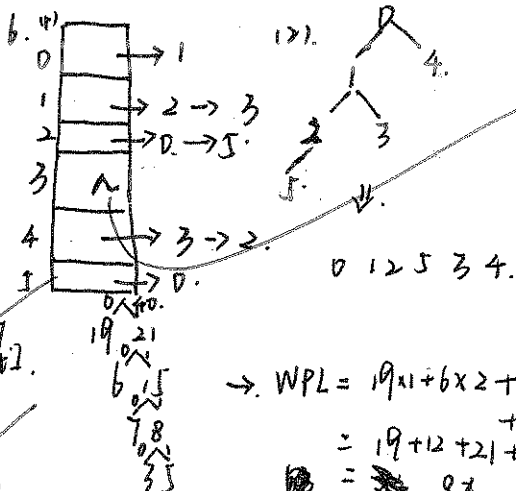 6. (1)
0 → 1
1 → 2 → 3
2 → 0. → 5.
3 ^
4 → 3 → 2.
5 → 0.
(2).
0
1 4.
2 3
5.
⇓.
0 1 2 5 3 4.
0 40.
19 21
0 1
6 15
0 1
7 8
0 1
3 5
→. WPL = 19×1+6×2+
+
= 19+12+21+
=